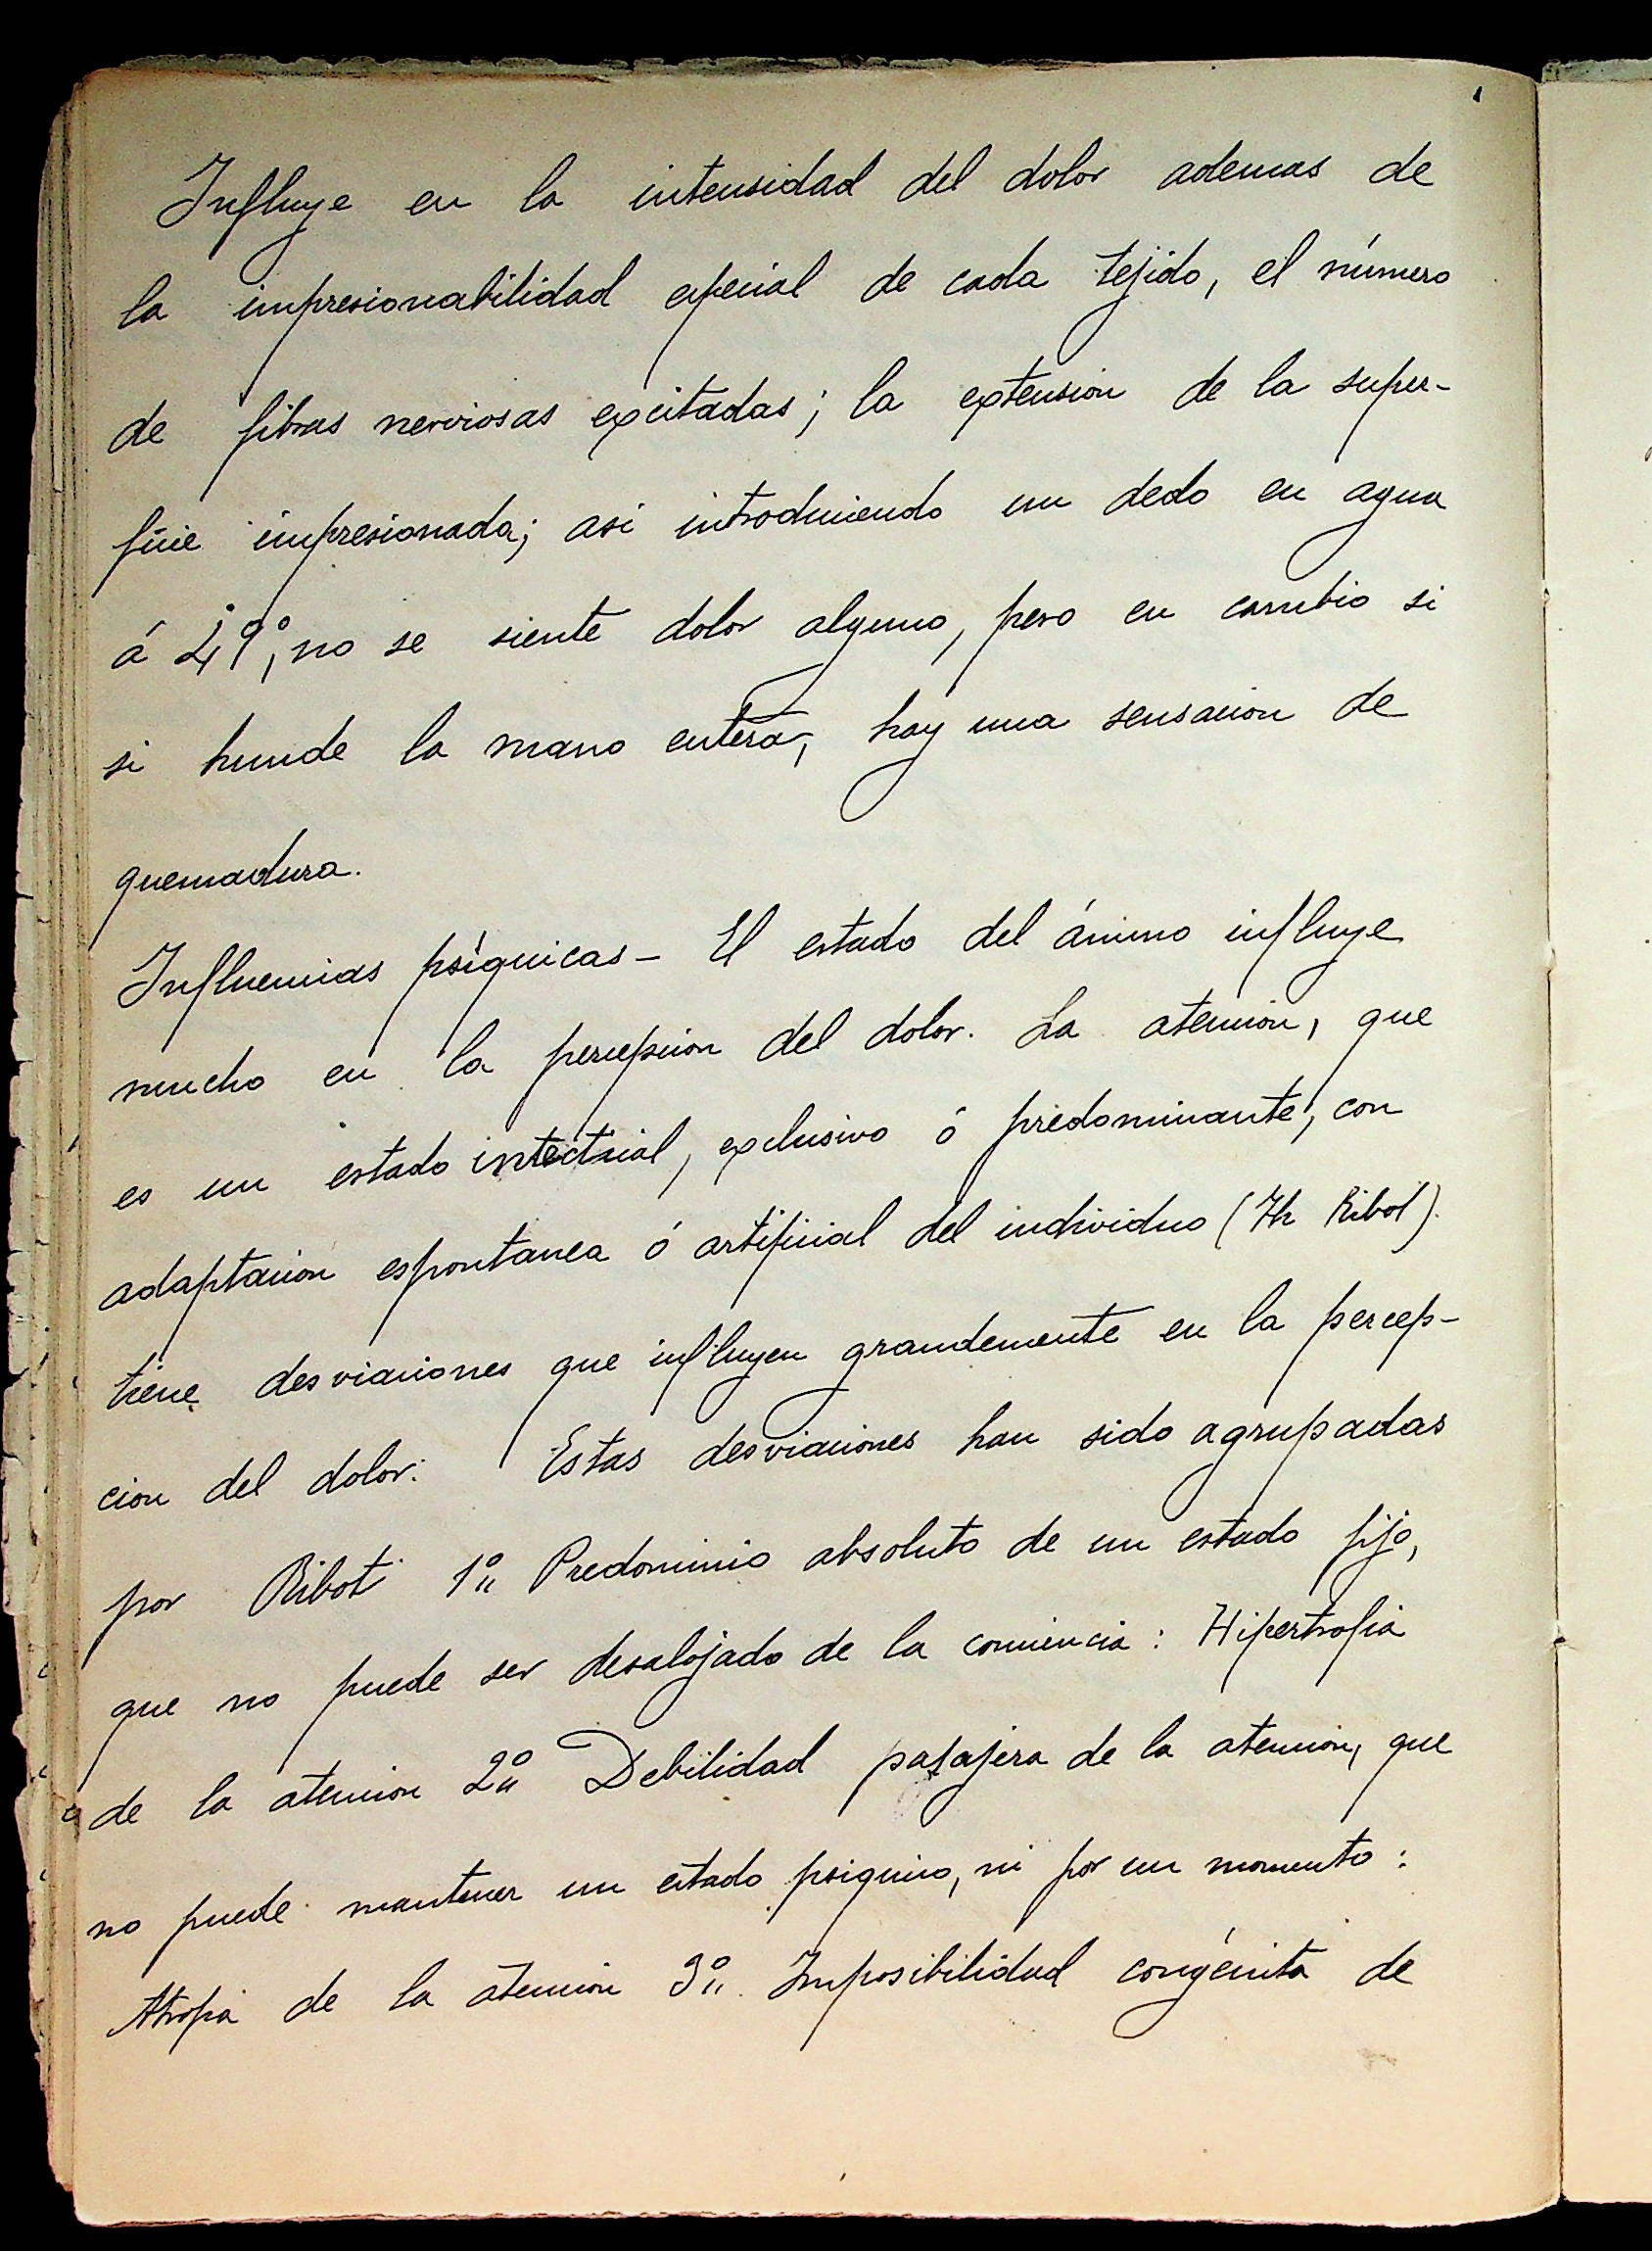 Influye en la intensidad del dolor ademas de
la impresionabilidad especial de cada tejido, el número
de fibras nerviosas excitadas; la extension de la super-
ficie impresionada; asi introduciendo un dedo en agua
á 49°, no se siente dolor alguno, pero en cambio si
si hunde la mano entera, hay una sensacion de
quemadura.
Influencias psíquicas - El estado del ánimo influye
mucho en la percepcion del dolor. La atencion, que
es un estado intectual, exclusivo ó predominante, con
adaptacion espontanea ó artificial del individuo (Th Ribot).
tiene desviaciones que influyen grandemente en la percep-
cion del dolor. Estas desviaciones han sido agrupadas
por Ribot 1º Predominio absoluto de un estado fijo,
que no puede ser desalojado de la conciencia: Hipertrofia
de la atencion 2º Debilidad pasajera de la atencion, que
no puede mantener un estado psiquico, ni por un momento:
Atrofia de la atencion 3º Imposibilidad congénita de